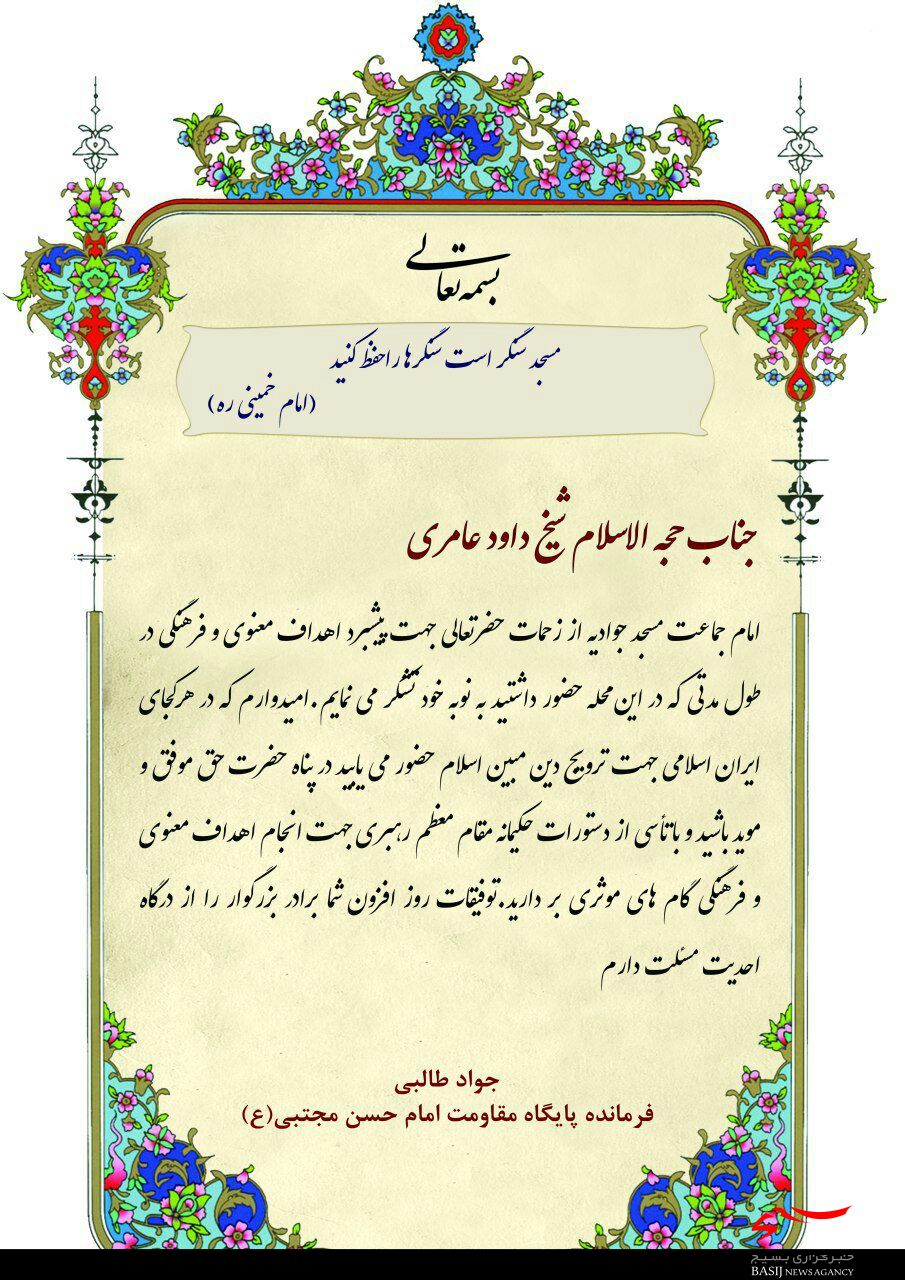 بسمه تعالی
مسجد سنگر است سنگرها را حفظ کنید
(امام خمینی ره)
جناب حجه الاسلام شیخ داود عامری
امام جماعت مسجد جوادیه از زحمات حضرتعالی جهت پیشبرد اهداف معنوی و فرهنگی در
طول مدتی که در این محله حضور داشتید به نوبه خود تشکر می نمایم.امیدوارم که در هرکجای
ایران اسلامی جهت ترویج دین مبین اسلام حضور می یابید در پناه حضرت حق موفق و
موید باشید و با تأسی از دستورات حکیمانه مقام معظم رهبری جهت انجام اهداف معنوی
و فرهنگی گام های موثری بر دارید.توفیقات روز افزون شما برادر بزرگوار را از درگاه
احدیت مسئلت دارم
جواد طالبی
فرمانده پایگاه مقاومت امام حسن مجتبی(ع)
بسیج
خبرگزاری بسیج
BASIJ NEWS AGANCY